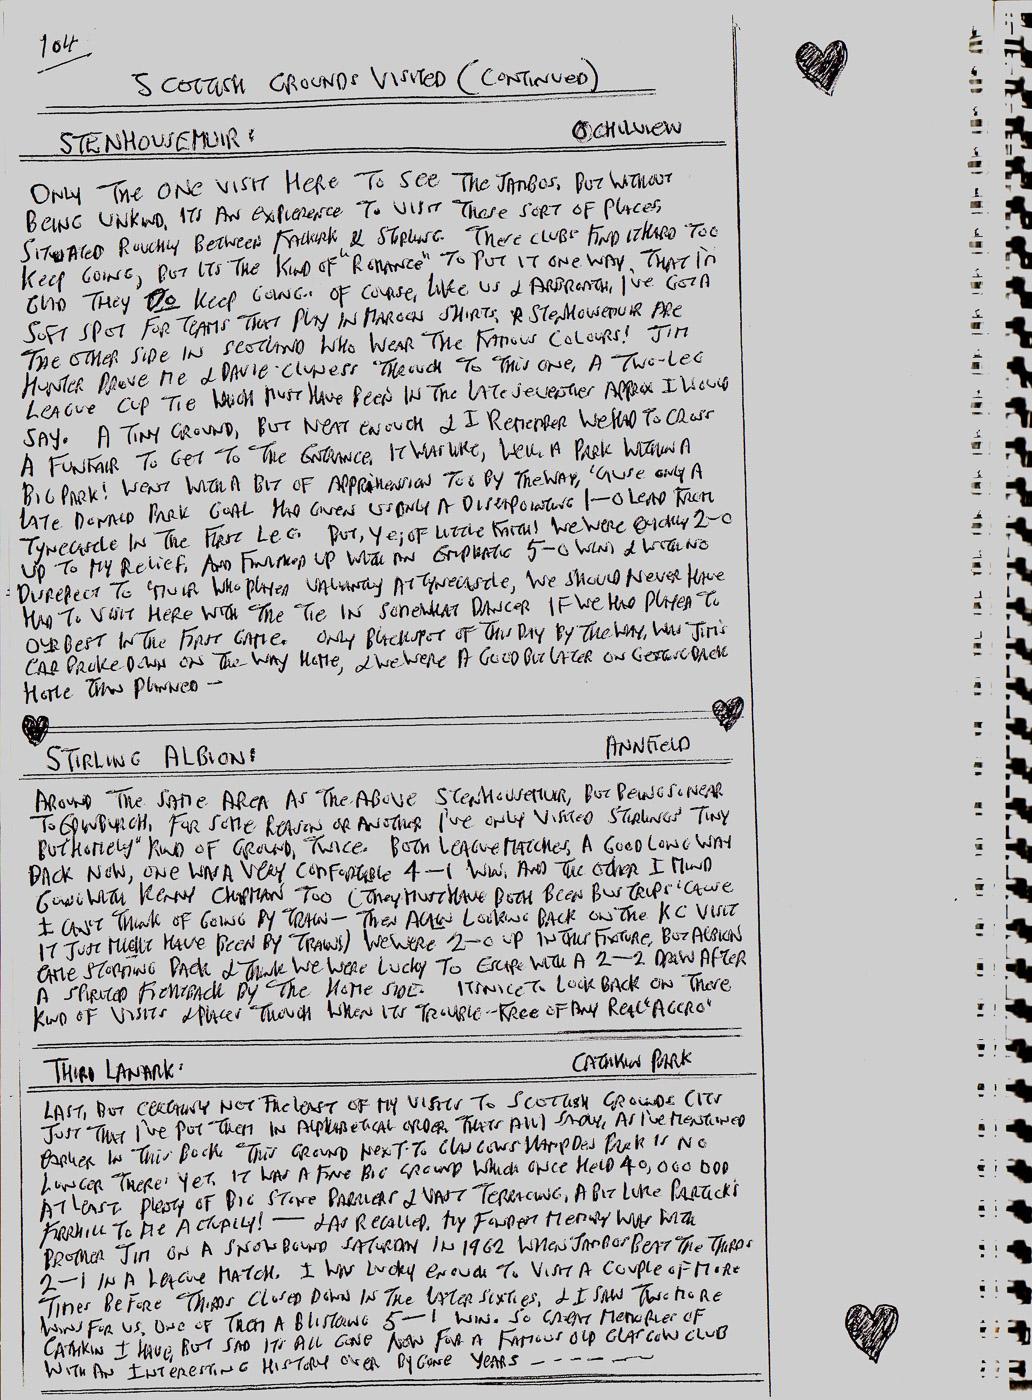 104
SCOTTISH GROUNDS VISITED (CONTINUED)
STENHOUSEMUIR: OCHILVIEW
ONLY THE ONE VISIT HERE TO SEE THE JAMBOS, BUT WITHOUT
BEING UNKIND, ITS AN EXPIERENCE TO VISIT THESE SORT OF PLACES,
SITUATED ROUGHLY BETWEEN FALKIRK & STIRLING. THESE CLUBS FIND IT HARD TOO
KEEP GOING, BUT ITS THE KIND OF "ROMANCE" TO PUT IT ONE WAY, THAT I'M
GLAD THEY DO KEEP GOING. OF COURSE, LIKE US & ARBROATH, I'VE GOT A
SOFT SPOT FOR TEAMS THAT PLAY IN MAROON SHIRTS, & STENHOUSEMUIR ARE
THE OTHER SIDE IN SCOTLAND WHO WEAR THE FAMOUS COLOURS! JIM
HUNTER DROVE ME & DAVIE CLUNESS THROUGH TO THIS ONE, A TWO-LEG
LEAGUE CUP TIE WHICH MUST HAVE BEEN IN THE LATE SEVENTIES APPROX I WOULD
SAY. A TINY GROUND, BUT NEAT ENOUGH & I REMEMBER WE HAD TO CROSS
A FUNFAIR TO GET TO THE ENTRANCE, IT WAS LIKE, WELL A PARK WITHIN A
BIG PARK! WENT WITH A BIT OF APPREHENSION TOO BY THE WAY, 'CAUSE ONLY A
LATE DONALD PARK GOAL HAD GIVEN US ONLY A DISSAPOINTING 1-0 LEAD FROM
TYNECASTLE IN THE FIRST LEG. BUT, YE, OF LITTLE FAITH! WE WERE QUICKLY 2-0
UP TO MY RELIEF, AND FINISHED UP WITH AN EMPHATIC 5-0 WIN & WITH NO
DISRESPECT TO 'MUIR WHO PLAYED VALIANTLY AT TYNECASTLE, WE SHOULD NEVER HAVE
HAD TO VISIT HERE WITH THE TIE IN SOMEWHAT DANGER IF WE HAD PLAYED TO
OUR BEST IN THE FIRST GAME. ONLY BLACKSPOT OF THIS DAY BY THE WAY, WAS JIM'S
CAR BROKE DOWN ON THE WAY HOME, & WE WERE A GOOD BIT LATER ON GETTING BACK
HOME THAN PLANNED -
STIRLING ALBION: ANNFIELD
AROUND THE SAME AREA AS THE ABOVE STENHOUSEMUIR, BUT BEING SO NEAR
TO EDINBURGH, FOR SOME REASON OR ANOTHER I'VE ONLY VISITED STIRLINGS' TINY
BUT HOMELY" KIND OF GROUND, TWICE. BOTH LEAGUE MATCHES, A GOOD LONG WAY
BACK NOW, ONE WAS A VERY COMFORTABLE 4-1 WIN. AND THE OTHER I MIND
GOING WITH KENNY CHAPMAN TOO (THEY MUST HAVE BOTH BEEN BUS TRIPS 'CAUSE
I CAN'T THINK OF GOING BY TRAIN - THEN AGAIN LOOKING BACK ON THE KC VISIT
IT JUST MIGHT HAVE BEEN BY TRAIN!) WE WERE 2-0 UP IN THIS FIXTURE, BUT ALBION
CAME STORMING BACK & THINK WE WERE LUCKY TO ESCAPE WITH A 2-2 DRAW AFTER
A SPIRITED FIGHTBACK BY THE HOME SIDE. ITS NICE TO LOOK BACK ON THESE
KIND OF VISITS & PLACES THOUGH WHEN ITS TROUBLE-FREE OF ANY REAL "AGGRO"
THIRD LANARK: CATHKIN PARK
LAST, BUT CERTAINLY NOT THE LEAST OF MY VISITS TO SCOTTISH GROUNDS (ITS
JUST THAT I'VE PUT THEM IN ALPHABETICAL ORDER THATS ALL) SADLY, AS I'VE MENTIONED
EARLIER IN THIS BOOK THIS GROUND NEXT TO GLASGOWS HAMPDEN PARK IS NO
LONGER THERE! YET, IT WAS A FINE BIG GROUND WHICH ONCE HELD 40,000 ODD
AT LEAST. PLENTY OF BIG STONE BARRIERS & VAST TERRACING, A BIT LIKE PARTICK'S
FIRRHILL TO ME ACTUALLY! - & AS RECALLED, MY FONDEST MEMORY WAS WITH
BROTHER JIM ON A SNOWBOUND SATURDAY IN 1962 WHEN JAMBOS BEAT THE THIRDS
2-1 IN A LEAGUE MATCH. I WAS LUCKY ENOUGH TO VISIT A COUPLE OF MORE
TIMES BEFORE THIRDS CLOSED DOWN IN THE LATER SIXTIES, & I SAW TWO MORE
WINS FOR US, ONE OF THEM A BLISTERING 5-1 WIN. SO GREAT MEMORIES OF
CATHKIN I HAVE, BUT SAD ITS ALL GONE NOW FOR A FAMOUS OLD GLASGOW CLUB
WITH AN INTERESTING HISTORY OVER BYGONE YEARS -----